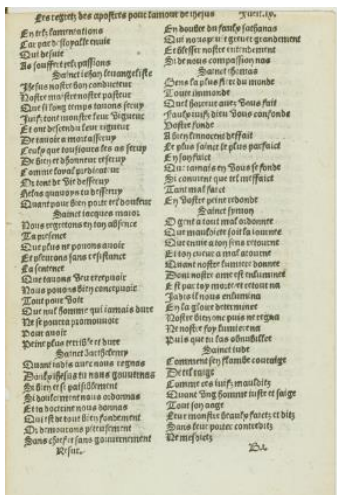 Les regretz des apostres pour lamour de ihesus
En tels lamentations
Car par desloyalle enuie
Qui desuie
As souffert tels passions
Sainct iehan leuangeliste
Ihesus nostre bon conducteur
Nostre maistre nostre pasteur
Que si long temps auons seruy
Iuifz tont monstre leur vigueur
Et ont descendu leur rigueur
De tauoir a mort asseruy
Ceulx que tousiours les as seruy
De bien et dhonneur reseruy
Comme loyal predicateur
Ont de toy desseruy
Helas quauons tu desseruy
Quant pour bien porte tel douleur
Sainct iacques maior
Nous regretons en ton absence
Ta presence
Que plus ne pouons auoir
Et plourons sans resistence
La sentence
Que tauons veu receuoir
Nous pouons bien conceuoir
Tout pour voir
Que nul homme qui iamais dure
Ne se pourra promouuoir
Pour auoir
Peine plus terrible et dure
Sainct barthelemy
Quant iadis auec nous regnas
Doulx ihesus tu nous gouuernas
Si bien et si paisiblement
Si haultement nous ordonnas
Et ta doctrine nous donnas
Qui est de tout bien fondement
Or demourons piteusement
Sans chef et sans gouuernement
En doubte du faulx sathanas
Qui nous pourra greuer grandement
Et blesser nostre entendement
Si de nous compassion nas
Sainct thomas
Gens la plus fiere du monde
Tout immonde
Quel horreur auez vous fait
Faulx iuifz dieu vous confonde
Vostre fonde
A bien linnocent deffait
Le plus sainct le plus parfaict
En son faict
Que iamais en vous se fonde
Si conuient que tel meffaict
Tant mal faict
En vostre peine redonde
Sainct symon
O gent a tout mal ordonnee
Que mauldicte soit la iournee
Que enuie a ton sens retourne
Et ton cueur a mal atourne
Quant nostre lumiere bonne
Dont nostre ame est enluminee
Est par toy morte et tout na
Iadis il nous enlumina
En la gloire determinee
Nostre bien one puis ne regna
Ne nostre foy lumiere na
Puis que tu las obnubillee
Sainct iude
Comment sen flambe couraige
De tel raige
Comme ces iuifz mauldictz
Quant vng homme iuste et saige
Tout son aage
Leur monstre beaulx faictz et ditz
Sans leur porter contredictz
Ne mesditz
B.i.